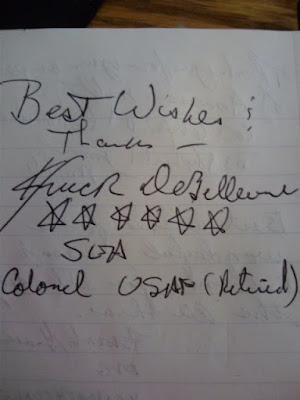 Best Wishes &
Thanks —
Chuck DeBellevue
☆ ☆ ☆ ☆ ☆ ☆
Colonel USAF (Retired)